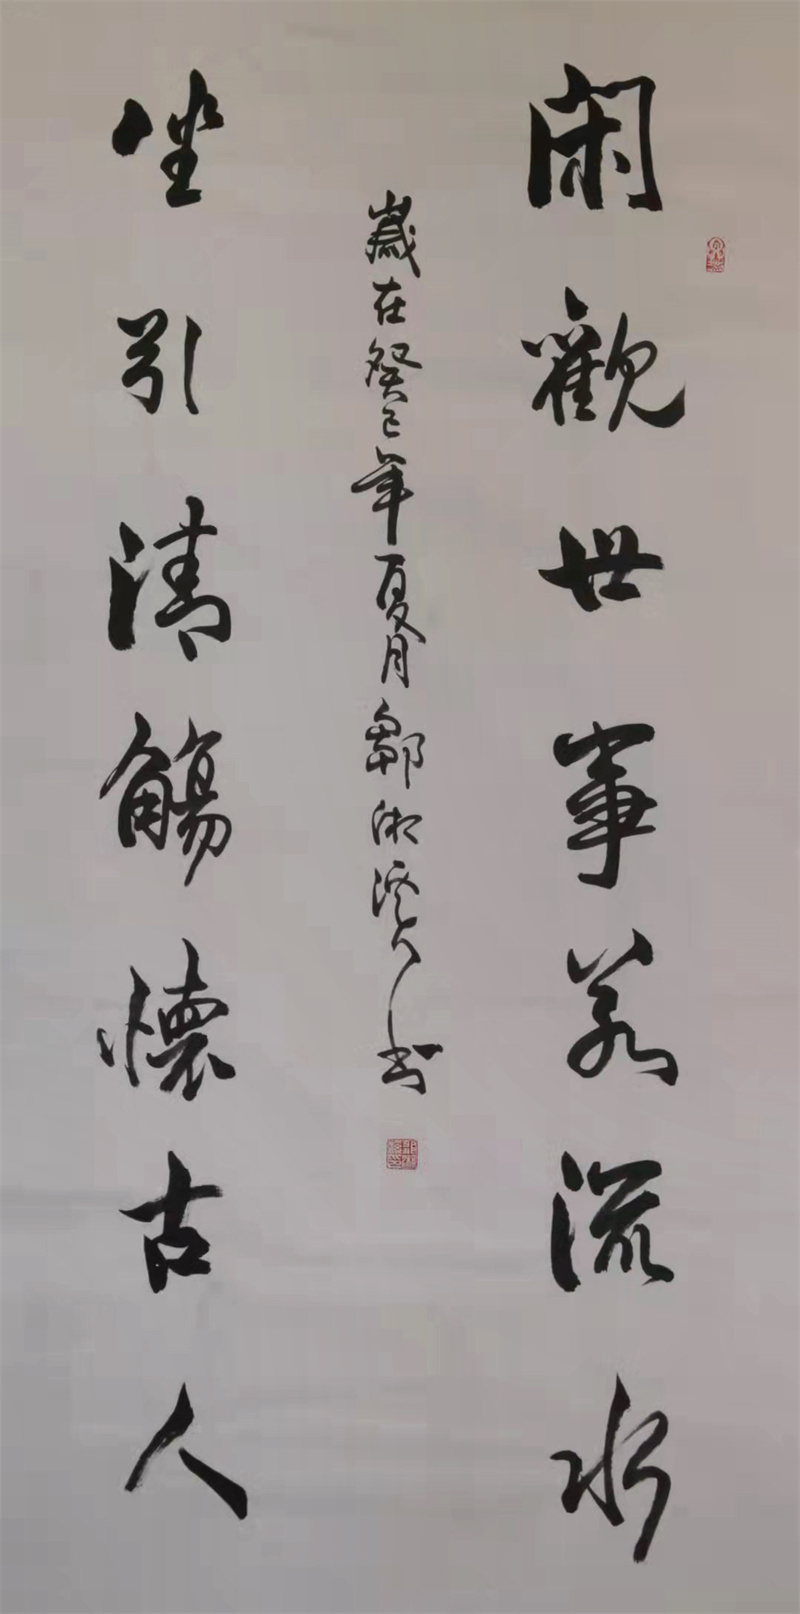 閑觀世事若流水
坐引清觴懷古人
歲在癸巳年夏月鄒湘溪書